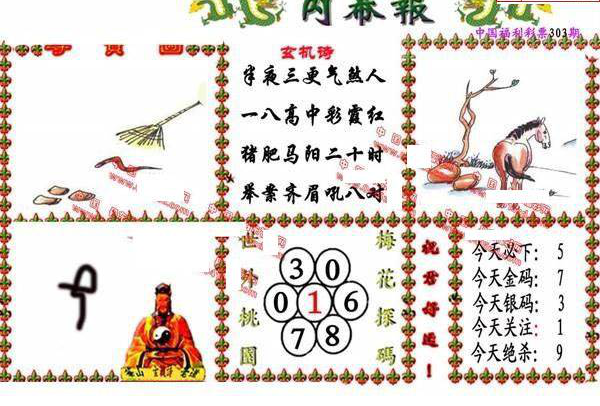 内幕報
中国福利彩票303期
寻寶圖
玄机诗
半夜三更气煞人
一八高中彩霞红
猪肥马阳二十时
举案齐眉吼八对
世外桃園
3 0
0 1 6
7 8
梅花探碼
祝君好运！
今天必下: 5
今天金码: 7
今天银码: 3
今天关注: 1
今天绝杀: 9